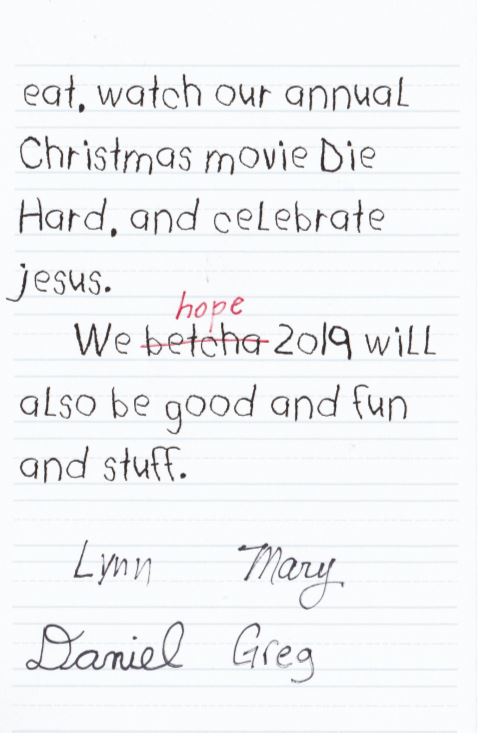 eat, watch our annual
Christmas movie Die
Hard, and celebrate
jesus.
hope
We betcha 2019 will
also be good and fun
and stuff.
Lynn Mary
Daniel Greg